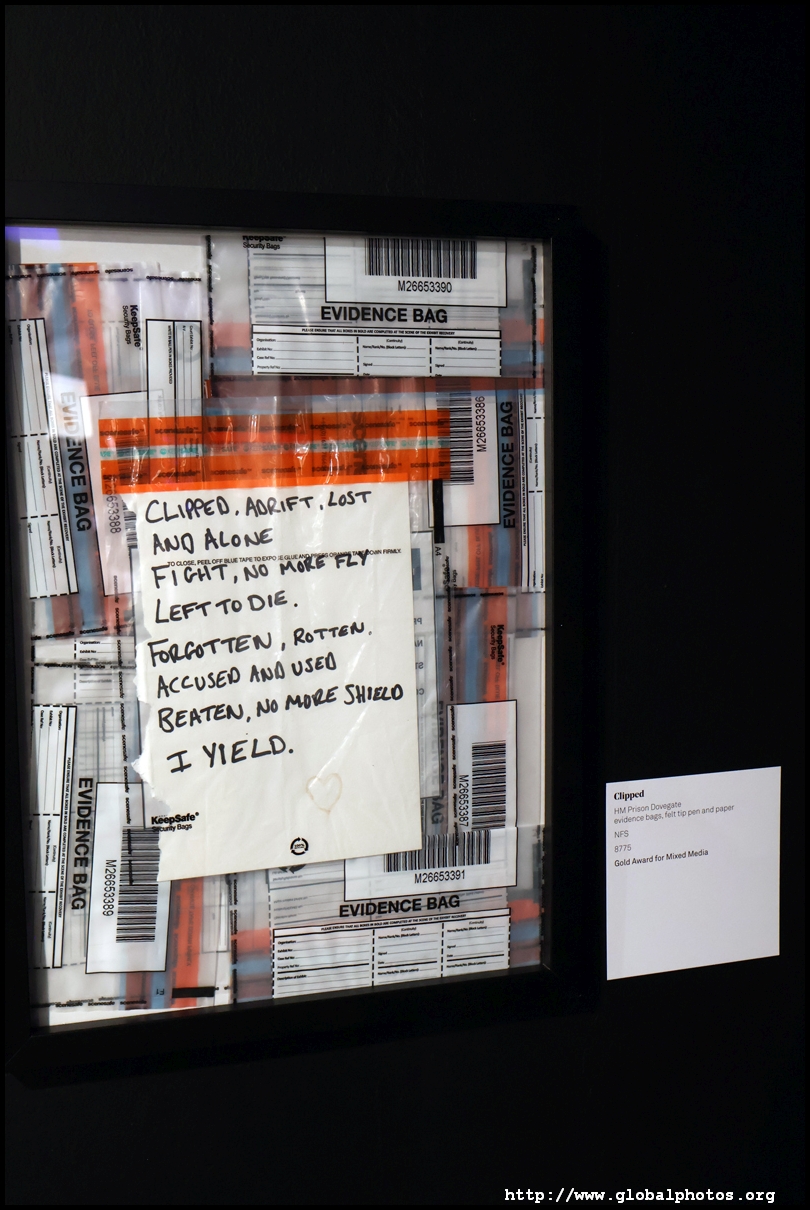 KeepSafe®
Security Bags
M26653390
EVIDENCE BAG
PLEASE ENSURE THAT ALL BOXES IN BOLD ARE COMPLETED AT THE SCENE OF THE EXHIBIT RECOVERY
KeepSafe®
Security Bags
EVIDENCE BAG
M26653388
M26653386
EVIDENCE BAG
CLIPPED, ADRIFT, LOST
AND ALONE
TO CLOSE, PEEL OFF BLUE TAPE TO EXPOSE GLUE AND PRESS ORANGE TAPE DOWN FIRMLY.
FIGHT, NO MORE FLY
LEFT TO DIE.
FORGOTTEN, ROTTEN,
ACCUSED AND USED
BEATEN, NO MORE SHIELD
I YIELD.
KeepSafe®
Security Bags
KeepSafe®
M26653387
EVIDENCE BAG
M26653389
M26653391
EVIDENCE BAG
PLEASE ENSURE THAT ALL BOXES IN BOLD ARE COMPLETED AT THE SCENE OF THE EXHIBIT RECOVERY
Clipped
HM Prison Dovegate
evidence bags, felt tip pen and paper
NFS
8775
Gold Award for Mixed Media
http://www.globalphotos.org